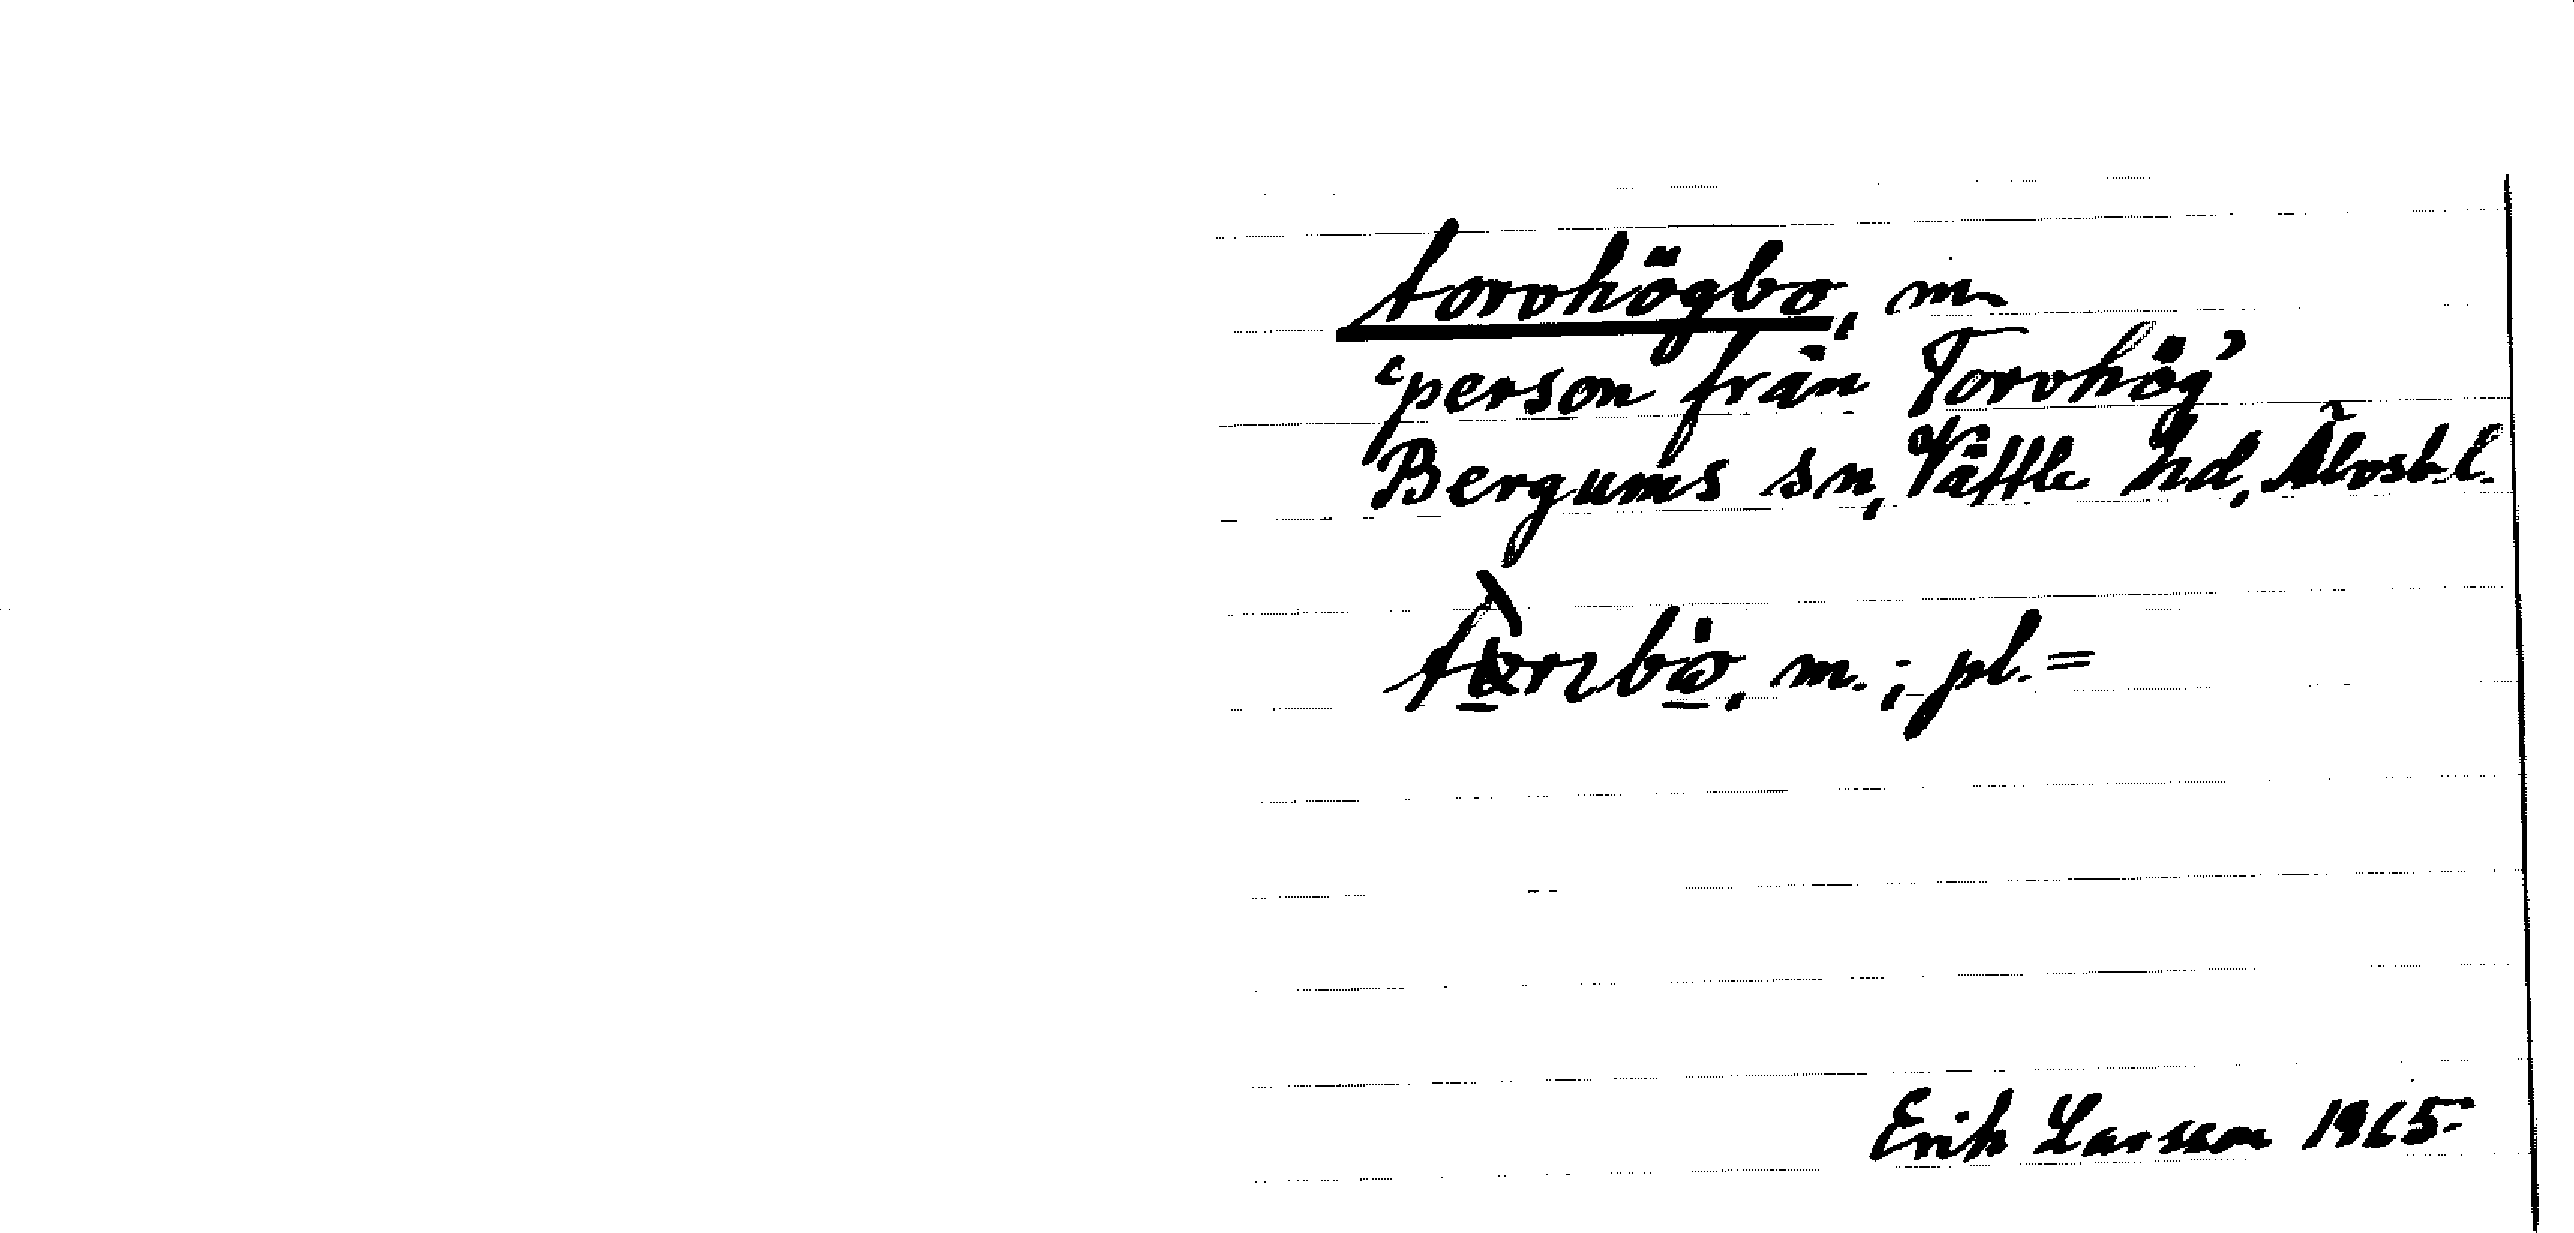 torvhögbo, m.
‘person från Torvhög’
Bergums sn, Vättle hd, Älvsb.l.
m.; pl. =
Erik Larsson 1965